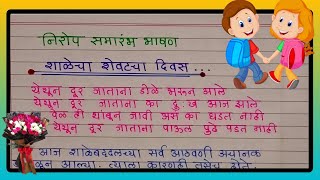 निरोप समारंभ भाषण
शाळेचा शेवटचा दिवस ...
येथून दूर जाताना डोळे भरून आले
येथून दूर जाताना का दुःख आज झाले
वेळ ही थांबून जावी असे का घडत नाही
येथून दूर जाताना पाऊल पुढे पडत नाही
आज शाळेबद्दलच्या सर्व आठवणी अचानक
आल्या. त्याला कारणही तसेच होते.